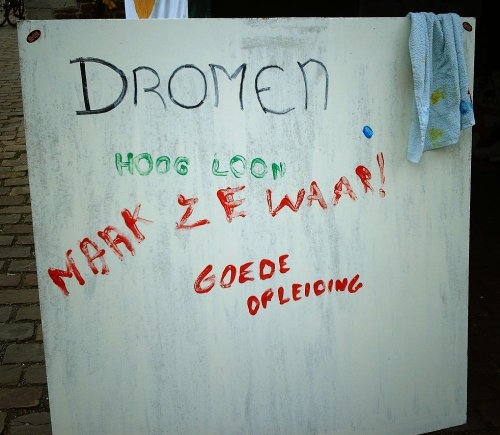 DROMEN
HOOG LOON
MAAK ZE WAAR!
GOEDE
OPLEIDING